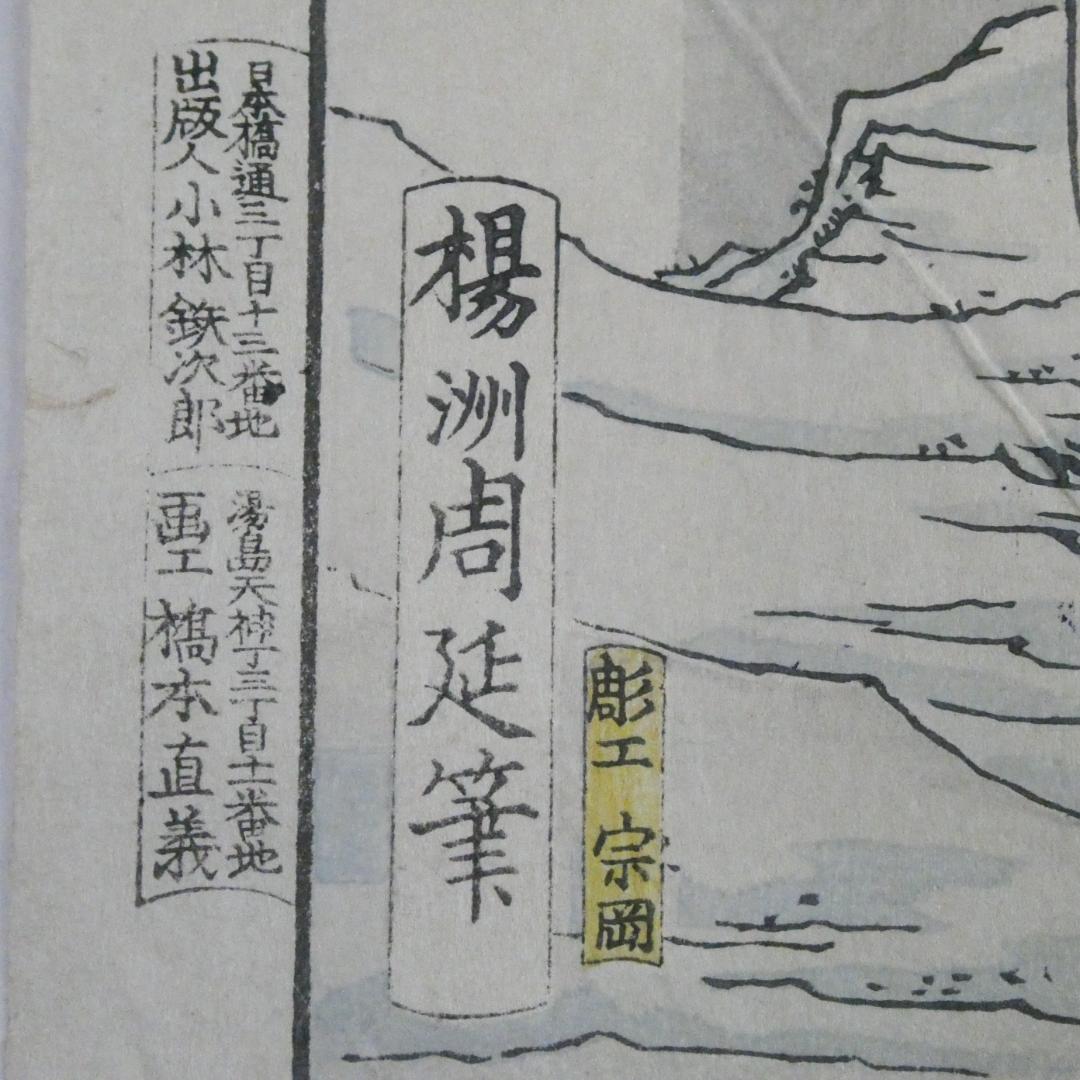 彫工 宗岡
楊洲周延筆
日本橋通三丁目十三番地
出版人 小林鉄次郎
湯島天神丁三丁目十一番地
画工 橋本直義